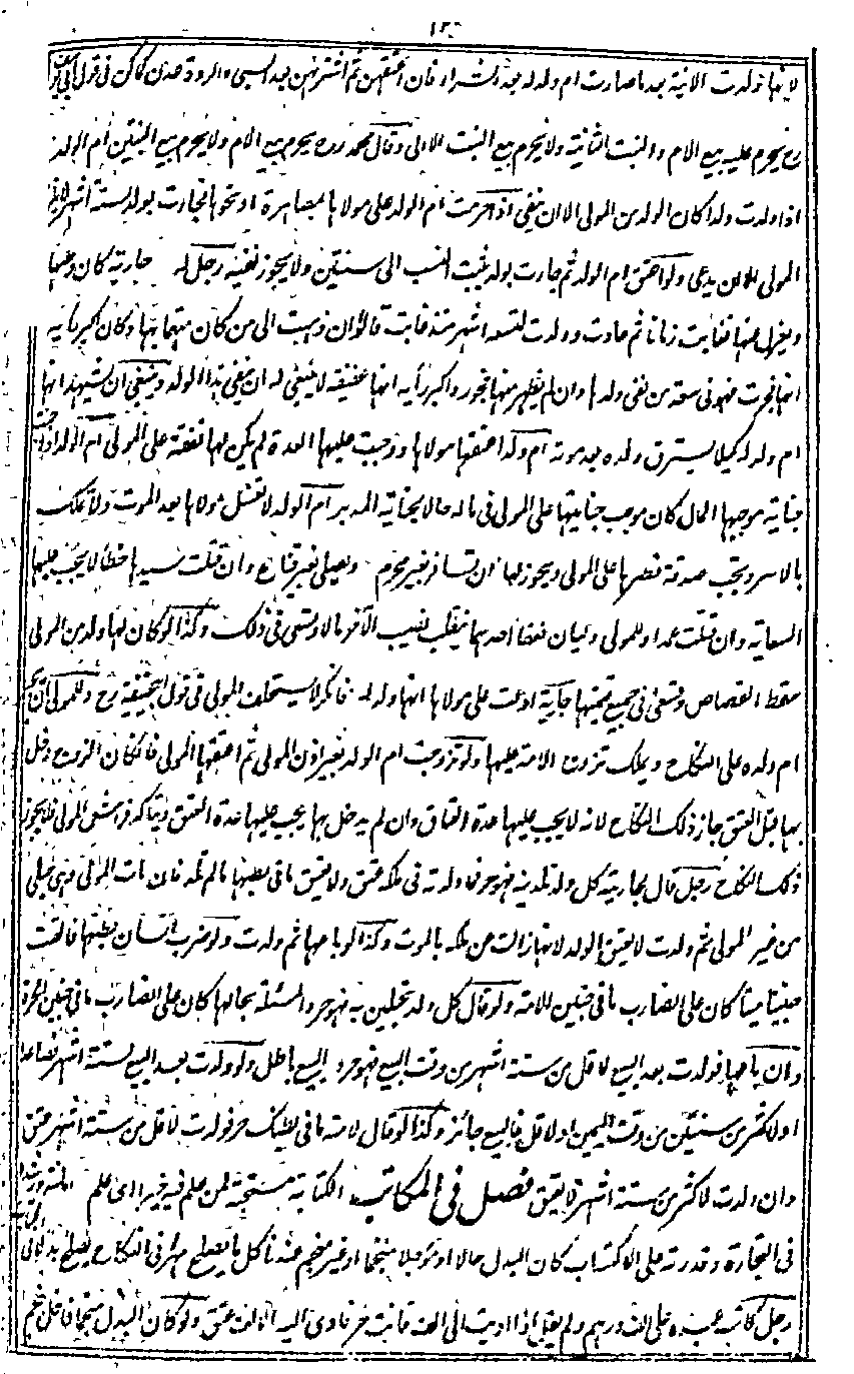 لانها ولدت الابنة بعد ما صارت ام ولد له بعد الشراء فان اعتقهن ثم اشتراهن بعد السبي والردة عدن كما كن في قول ابي يوسف
رح يحرم عليه بيع الام والبنت الثانية ولا يحرم بيع البنت الاولى وقال محمد رح يحرم بيع الام ولا يحرم بيع البنتين ام الولد
اذا ولدت ولدا كان الولد من المولى الا ان ينفي اذا حرمت ام الولد على مولاها بمصاهرة او نحوها فجاءت بولد لستة اشهر
المولى الا ان يدعي ولو اعتق ام الولد ثم جاءت بولد يثبت النسب الى سنتين ولا يجوز نفيه رجل له جارية كان يطأها
ويعزل عنها فغابت زمانا ثم عادت وولدت لتسعة اشهر منذ غابت قالوا ان ذهبت الى من كان متهما بها وكان اكبر رأيه
انها فجرت فهو في سعة من نفي ولدها وان لم يظهر منها فجور واكبر رأيه انها عفيفة لا ينبغي له ان ينفي هذا الولد وينبغي ان يشهد انها
ام ولد له كيلا يسترق ولده بعد موته ام ولد اعتقها مولاها ووجبت عليها العدة لم يكن لها نفقة على المولى ام الولد اذا جنت
جناية موجبها المال كان موجب جنايتها على المولى في ماله حالا بجناية المدبر ام الولد لا تغسل مولاها بعد الموت ولا تملك
بالاسر ويجب صدقة فطرها على المولى ويجوز لها ان تسافر بغير محرم وتصلي بغير قناع وان قتلت سيدها خطأ لا يجب عليها
السعاية وان قتلت عمدا وللمولى وليان فعفا احدهما ينقلب نصيب الآخر مالا وتسعى في ذلك وكذا لو كان لها ولد من المولى
سقط القصاص وتسعى في جميع قيمتها جارية ادعت على مولاها انها ولد له فانكر لا يستحلف المولى في قول ابي حنيفة رح وللمولى ان يجبر
ام ولده على النكاح ويملك تزويج الامة عليها ولو تزوجت ام الولد بغير اذن المولى ثم اعتقها المولى فان كان الزوج دخل
بها قبل العتق جاز ذلك النكاح لانه لا يجب عليها عدة العتاق وان لم يدخل بها يجب عليها عدة العتق فراش المولى فلا يجوز
ذلك النكاح رجل قال لجاريته كل ولد تلدينه فهو حر فما ولدته في ملكه عتق ولا يعتق ما في بطنها ما لم تلد فان مات المولى وهي حبلى
من غير المولى ثم ولدت لا يعتق الولد لانها زالت عن ملكه بالموت وكذا لو باعها ثم ولدت ولو ضرب انسان بطنها فالقت
جنينا ميتا كان على الضارب ما في جنين الامة ولو قال كل ولد تحبلين به فهو حر والمسئلة بحالها كان على الضارب ما في جنين الحرة
وان باعها فولدت بعد البيع لاقل من ستة اشهر من وقت البيع فهو حر والبيع باطل ولو ولدت بعد البيع لستة اشهر فصاعدا
او لاكثر من سنتين من وقت اليمين او لاقل فالبيع جائز وكذا لو قال لامته ما في بطنك حر فولدت لاقل من ستة اشهر عتق
وان ولدت لاكثر من ستة اشهر لا يعتق فصل في المكاتب الكتابة مستحبة لمن علم فيه خيرا اي علم
في التجارة وقدرته على الاكتساب كان البدل حالا او مؤجلا منجما او غير منجم عندنا كل ما يصلح مهرا في النكاح يصلح بدلا في
رجل كاتب عبده على الف درهم ولم يقل اذا اديت الي الفا فانت حر فادى اليه الالف عتق ولو كان البدل منجما فاخل نجم